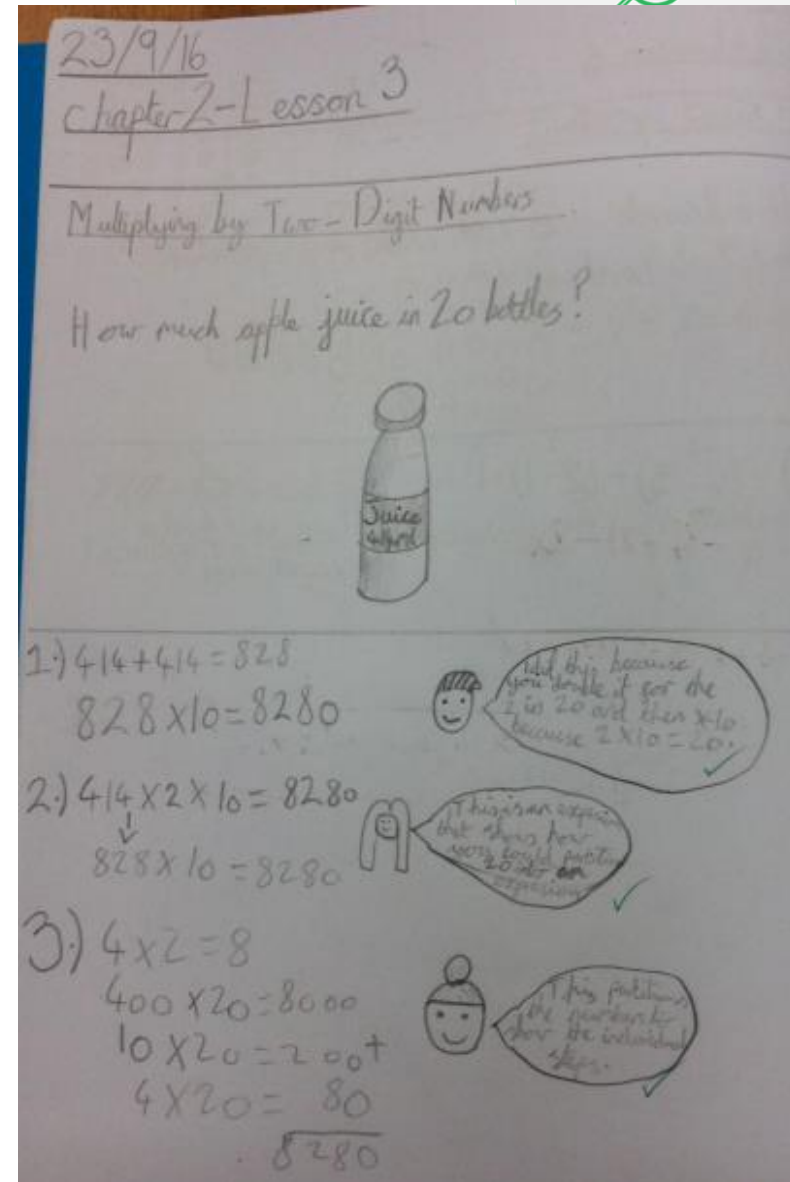 23/9/16
Chapter 2 - Lesson 3
Multiplying by Two-Digit Numbers
How much apple juice in 20 bottles?
Juice
1.) 414+414=828
828x10=8280
I did this because
you double it for the
2 in 20 and then x10
because 2x10=20.
2.) 414x2x10=8280
828x10=8280
This is an
that shows how
you could partition
20 into an
3.) 4x2=8
400x20=8000
10x20=200+
4x20= 80
8280
This partitions
the numbers to
show the individual
steps.